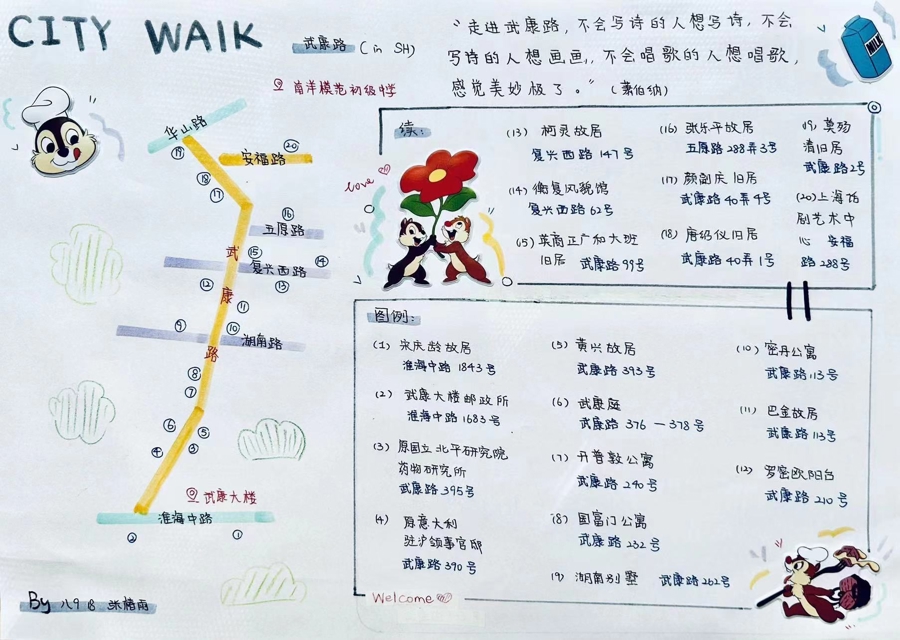 CITY WALK
武康路 (in SH)
南洋模范初级中学
“走进武康路，不会写诗的人想写诗，不会
写诗的人想画画，不会唱歌的人想唱歌，
感觉美妙极了。” (萧伯纳)
MILK
华山路
⑲
⑳
安福路
⑱
⑰
⑯
五原路
武
⑮
⑭
复兴西路
⑬
⑫
康
⑪
⑨
⑩
湖南路
路
⑧
⑦
⑥
⑤
④
③
武康大楼
淮海中路
②
①
By 八9 B
love
续：
(13) 柯灵故居
复兴西路 147号
(14) 衡复风貌馆
复兴西路 62号
(15) 英商正广和大班
旧居 武康路 99号
(16) 张乐平故居
五原路 288弄3号
(17) 颜副庆旧居
武康路 40弄4号
(18) 唐绍仪旧居
武康路 40弄1号
(19) 莫觞
清旧居
武康路2号
(20) 上海话
剧艺术中
心 安福
路 288号
图例：
(1) 宋庆龄故居
淮海中路 1843号
(2) 武康大楼邮政所
淮海中路 1683号
(3) 原国立北平研究院
药物研究所
武康路 395号
(4) 原意大利
驻沪领事官邸
武康路 390号
(5) 黄兴故居
武康路 393号
(6) 武康庭
武康路 376 — 378号
(7) 开普敦公寓
武康路 240号
(8) 国富门公寓
武康路 232号
(9) 湖南别墅 武康路 262号
(10) 密丹公寓
武康路 113号
(11) 巴金故居
武康路 113号
(12) 罗密欧阳台
武康路 210号
Welcome